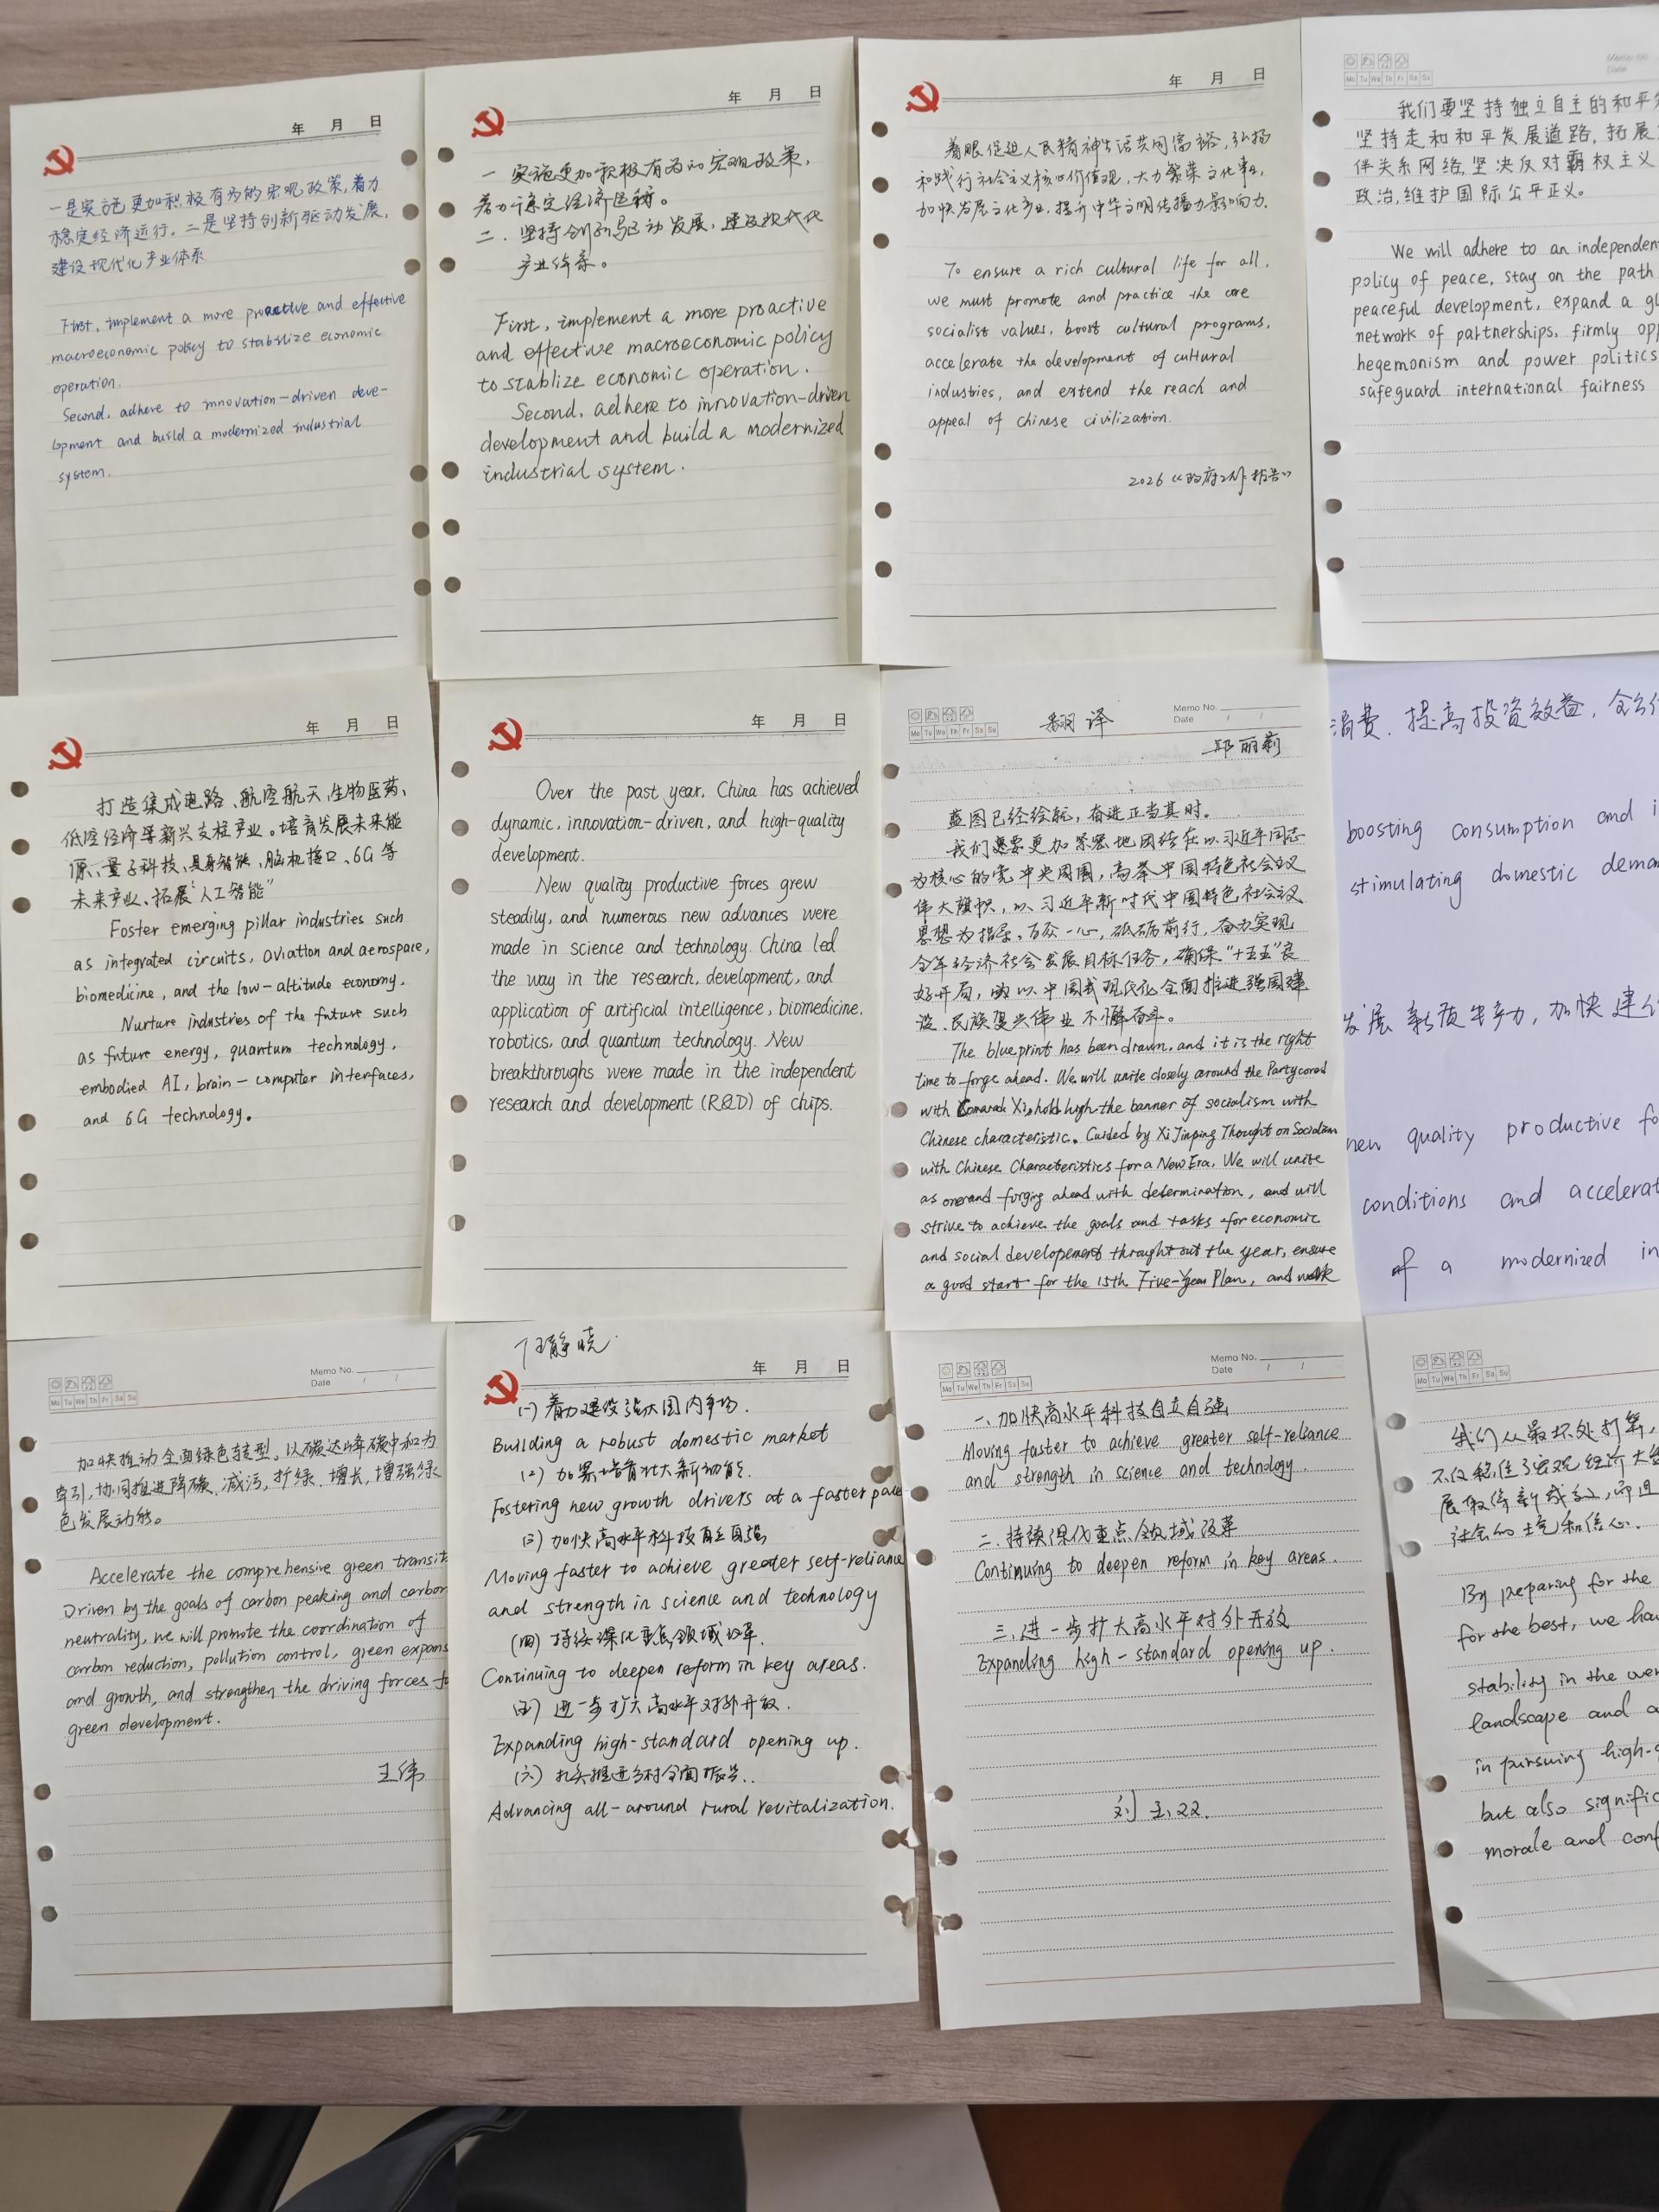 年 月 日
一是实施更加积极有为的宏观政策,着力
稳定经济运行。二是坚持创新驱动发展,
建设现代化产业体系
First, implement a more proactive and effective
macroeconomic policy to stabilize economic
operation.
Second, adhere to innovation-driven deve-
lopment and build a modernized industrial
system.
年 月 日
一 实施更加积极有为的宏观政策,
着力稳定经济运行。
二. 坚持创新驱动发展,建设现代化
产业体系。
First, implement a more proactive
and effective macroeconomic policy
to stablize economic operation.
Second, adhere to innovation-driven
development and build a modernized
industrial system.
年 月 日
着眼促进人民精神生活共同富裕,弘扬
和践行社会主义核心价值观,大力繁荣文化事业,
加快发展文化产业,提升中华文明传播力影响力.
To ensure a rich cultural life for all,
we must promote and practice the core
socialist values, boost cultural programs,
accelerate the development of cultural
industries, and extend the reach and
appeal of Chinese civilization.
2026《政府工作报告》
Memo No.
Date
Mo Tu We Th Fr Sa Su
我们要坚持独立自主的和平
坚持走和和平发展道路,拓展
伴关系网络,坚决反对霸权主义
政治,维护国际公平正义。
We will adhere to an independen
policy of peace, stay on the path
peaceful development, expand a gl
network of partnerships, firmly opp
hegemonism and power politics
safeguard international fairness
年 月 日
打造集成电路、航空航天、生物医药、
低空经济等新兴支柱产业。培育发展未来能
源、量子科技、具身智能、脑机接口、6G等
未来产业、拓展"人工智能"
Foster emerging pillar industries such
as integrated circuits, aviation and aerospace,
biomedicine, and the low-altitude economy.
Nurture industries of the future such
as future energy, quantum technology,
embodied AI, brain-computer interfaces,
and 6G technology.
年 月 日
Over the past year, China has achieved
dynamic, innovation-driven, and high-quality
development.
New quality productive forces grew
steadily, and numerous new advances were
made in science and technology. China led
the way in the research, development, and
application of artificial intelligence, biomedicine,
robotics, and quantum technology. New
breakthroughs were made in the independent
research and development (R&D) of chips.
Mo Tu We Th Fr Sa Su
翻译
Memo No.
Date / /
邱丽莉
蓝图已经绘就,奋进正当其时。
我们要更加紧密地团结在以习近平同志
为核心的党中央周围,高举中国特色社会主义
伟大旗帜,以习近平新时代中国特色社会主义
思想为指导,万众一心,砥砺前行,奋力实现
全年经济社会发展目标任务,确保"十五五"良
好开局,以中国式现代化全面推进强国建
设、民族复兴伟业不懈奋斗。
The blueprint has been drawn, and it is the right
time to forge ahead. We will unite closely around the Party cored
with Comarade Xi, hold high the banner of socialism with
Chinese characteristic. Guided by Xi Jinping Thought on Socialism
with Chinese Characteristics for a New Era, We will unite
as one and forging ahead with determination, and will
strive to achieve the goals and tasks for economic
and social developement throught out the year, ensure
a good start for the 15th Five-Year Plan, and work
消费,提高投资效益,
boosting consumption and i
stimulating domestic dema
发展新质生产力,加快建
new quality productive fo
conditions and accelerat
of a modernized in
Mo Tu We Th Fr Sa Su
Memo No.
Date / /
加快推动全面绿色转型。以碳达峰碳中和为
牵引,协同推进降碳、减污,扩绿、增长,增强绿
色发展动能。
Accelerate the comprehensive green transit
Driven by the goals of carbon peaking and carbon
neutrality, we will promote the coordination of
carbon reduction, pollution control, green expans
and growth, and strengthen the driving forces fo
green development.
王伟
任静晓
年 月 日
(一) 着力建设强大国内市场.
Building a robust domestic market
(二) 加紧培育壮大新动能.
Fostering new growth drivers at a faster pace
(三) 加快高水平科技自立自强
Moving faster to achieve greater self-reliance
and strength in science and technology
(四) 持续深化重点领域改革.
Continuing to deepen reform in key areas.
(五) 进一步扩大高水平对外开放.
Expanding high-standard opening up.
(六) 扎实推进乡村全面振兴.
Advancing all-around rural revitalization.
Mo Tu We Th Fr Sa Su
Memo No.
Date / /
一、加快高水平科技自立自强
Moving faster to achieve greater self-reliance
and strength in science and technology.
二、持续深化重点领域改革
Continuing to deepen reform in key areas.
三、进一步扩大高水平对外开放
Expanding high-standard opening up.
Mo Tu We Th Fr Sa Su
我们从最坏处打算,
不仅稳住了宏观经济大
展取得新成效,而且
社会的士气和信心.
By preparing for the
for the best, we hav
stability in the over
landscape and a
in pursuing high-q
but also signific
morale and conf